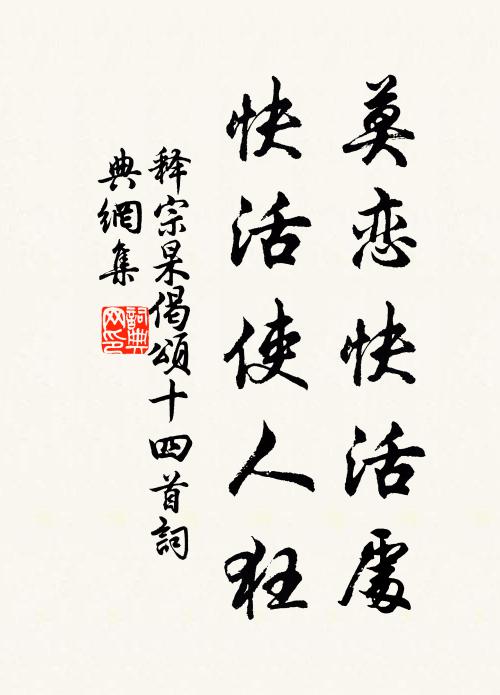 莫恋快活處
快活使人狂
释宗杲偈頌十四首詞
典網集
詞典网印